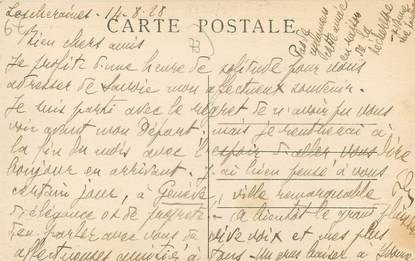 Lescheraines - 14.8.28
CARTE POSTALE
Bien chers amis
Je profite d'une heure de solitude pour vous
adresser de Savoie mon affectueux souvenir.
Je suis parti avec le regret de n'avoir pu vous
voir avant mon départ, mais je rentrerai à
la fin du mois avec l'espoir d'aller vous dire
bonjour en arrivant. J'ai bien pensé à vous
certain jour, à Genève, ville remarquable
d'élégance et de propreté - à bientôt le grand plaisir
d'en parler avec vous de vive voix et mes plus
affectueuses amitiés à tous. Un gros baiser à Yvonne